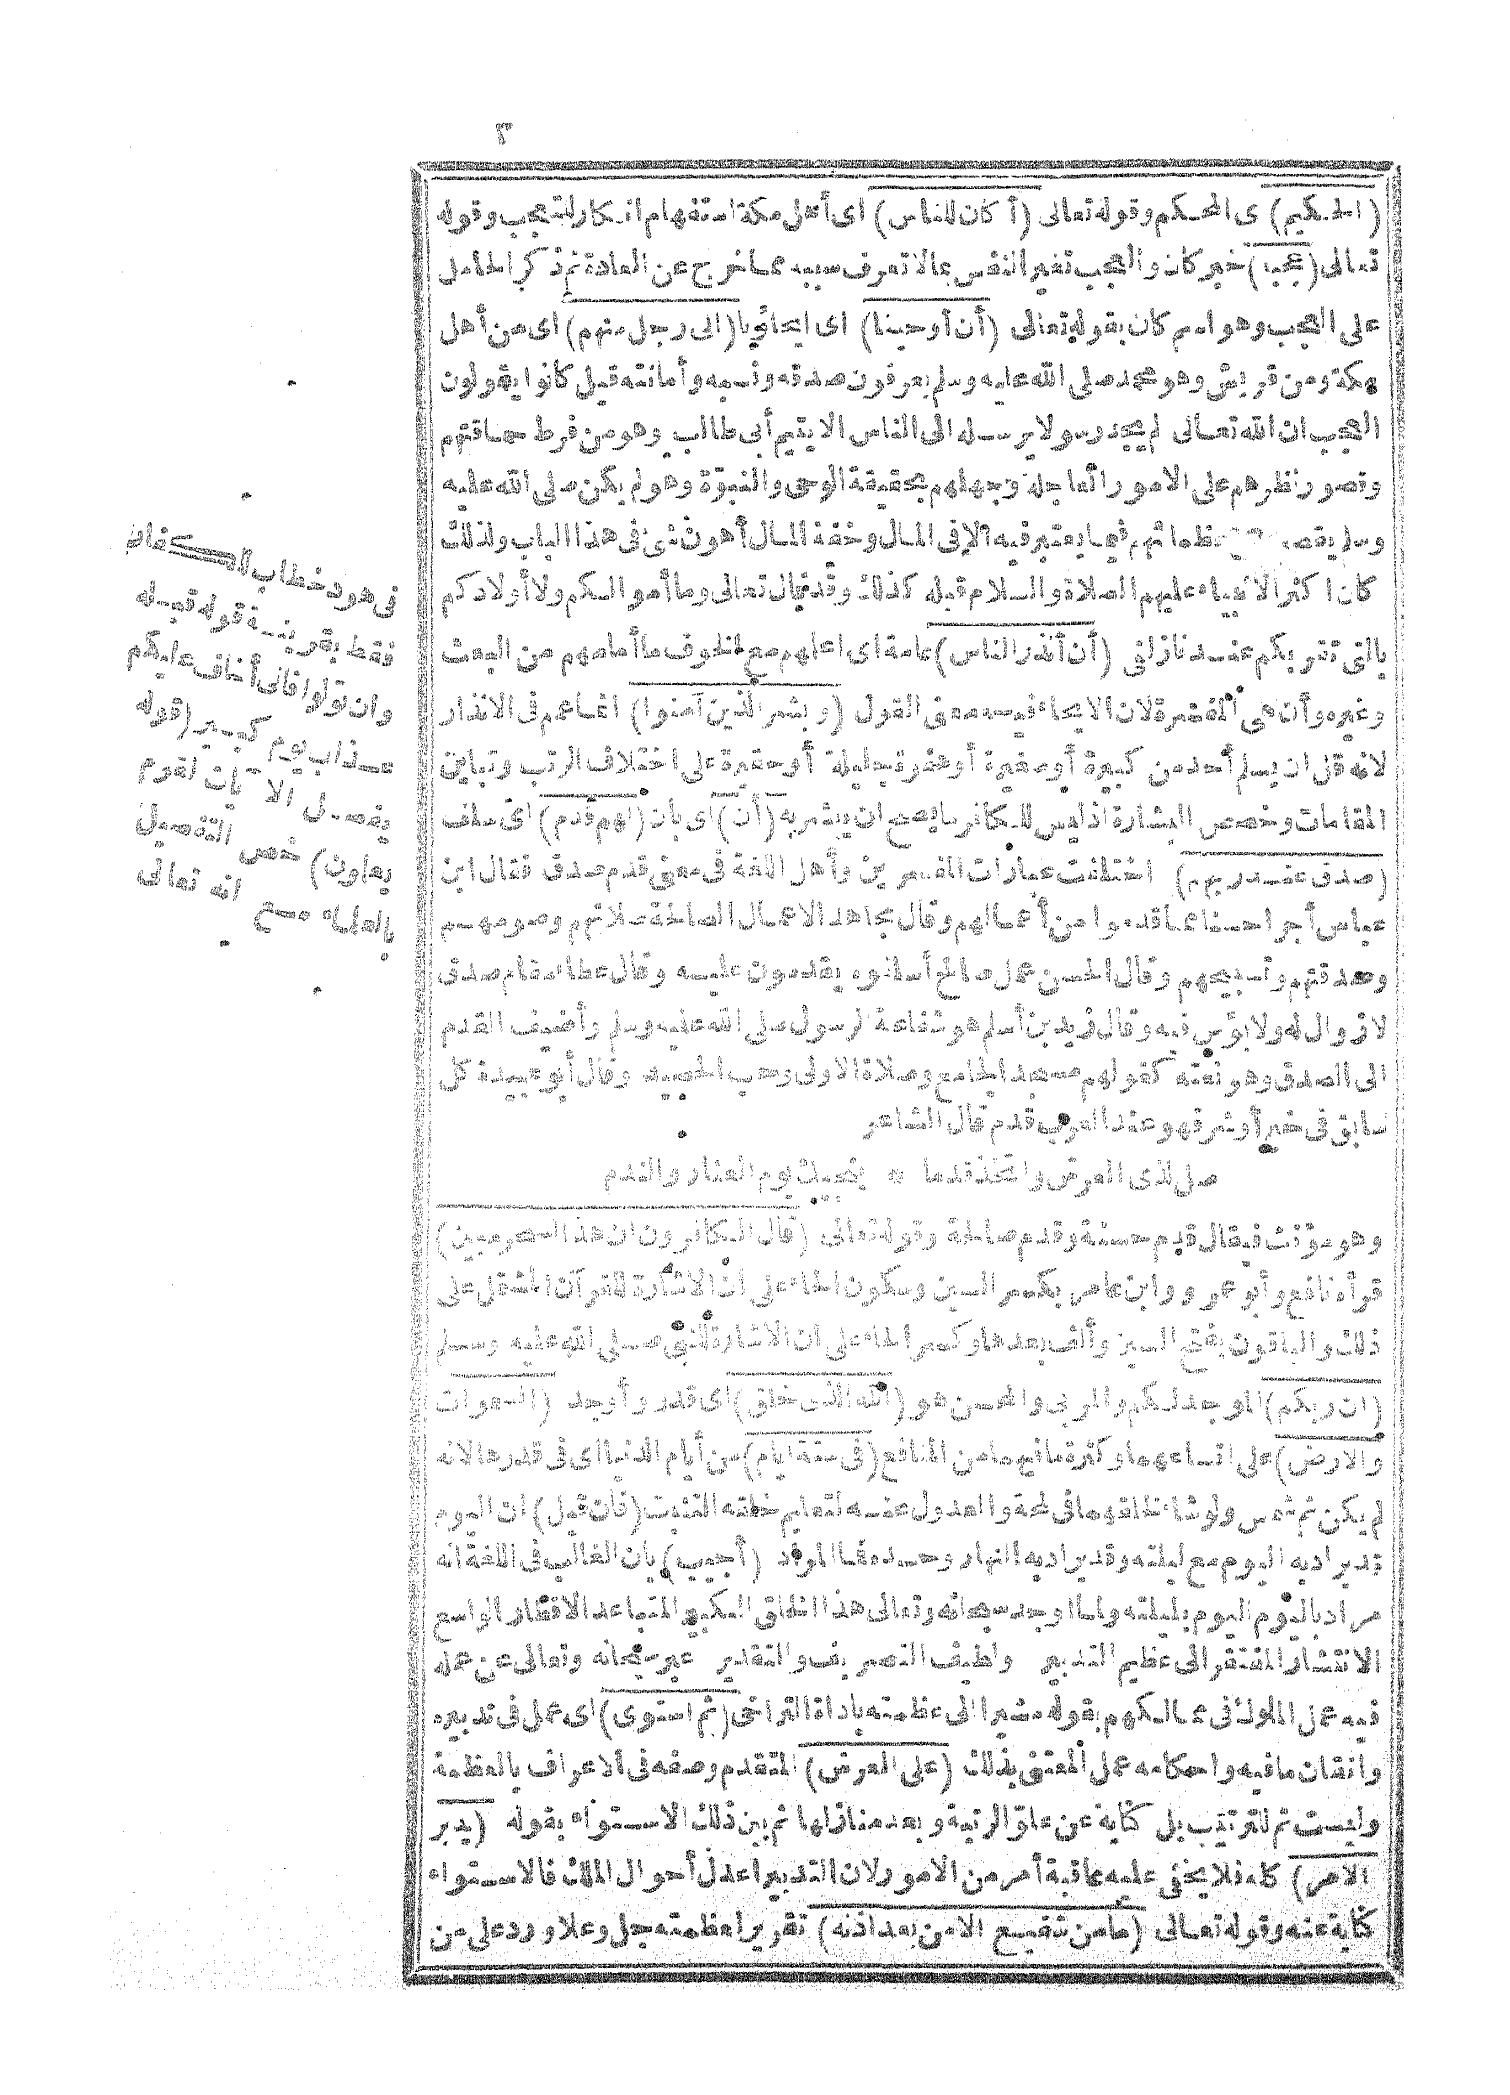 ٣
(الحكيم) ى المحكم وقوله تعالى (أ كان للناس) اى أهل مكة استفهام انكار للتعجب وقوله
تعالى (عجبا) خبر كان والعجب تغير النفس بما لا تعرف سببه مما خرج عن العادة ثم ذكر الحامل
على العجب وهو اسم كان بقوله تعالى (أن أوحينا) اى ايحاؤنا (الى رجل منهم) اى من أهل
مكة ومن قريش وهو محمد صلى الله عليه وسلم يعرفون صدقه ونسبه وأمانته قيل كانوا يقولون
العجب ان الله تعالى لم يجد رسولا يرسله الى الناس الا يتيم أبى طالب وهو من فرط حماقتهم
وقصور نظرهم على الامور العاجلة وجهلهم بحقيقة الوحى والنبوّة وهو لم يكن صلى الله عليه
وسلم يقصر عن عظمائهم فيما يعتبر فيه الا فى المال وخفة المال أهون شئ فى هذا الباب ولذلك
كان اكثر الانبياء عليهم الصلاة والسلام قبله كذلك وقد قال تعالى وما أموالكم ولا أولادكم
بالتى تقربكم عندنا زلفى (أن أنذر الناس) عامة اى اعلمهم مع الخوف ما أمامهم من البعث
وغيره وأن هى المفسرة لان الايحاء فيه معنى القول (وبشر الذين آمنوا) انما عمم فى الانذار
لانه قل ان يسلم أحد من كبيرة أو صغيرة أو هفوة جليلة أو حقيرة على اختلاف الرتب وتباين
المقامات وخصص البشارة اذ ليس للكافر ما يصح ان يبشر به (أن) اى بأن (لهم قدم) اى سلف
(صدق عند ربهم) اختلفت عبارات المفسرين وأهل اللغة فى معنى قدم صدق فقال ابن
عباس أجرا حسنا بما قدموا من أعمالهم وقال مجاهد الاعمال الصالحة صلاتهم وصومهم
وصدقتهم وتسبيحهم وقال الحسن عمل صالح أسلفوه يقدمون عليه وقال عطاء مقام صدق
لا زوال له ولا بؤس فيه وقال زيد بن أسلم هو شفاعة الرسول صلى الله عليه وسلم وأضيف القدم
الى الصدق وهو نعته كقولهم مسجد الجامع وصلاة الاولى وحب الحصيد وقال أبو عبيدة كل
سابق فى خير أو شر فهو عند العرب قدم قال الشاعر
صل لذى العرش واتخذ قدما * ينجيك يوم العثار والندم
وهو مؤنث فيقال قدم حسنة وقدم صالحة وقوله تعالى (قال الكافرون ان هذا لسحر مبين)
قرأه نافع وأبو عمرو وابن عامر بكسر السين وسكون الحاء على ان الاشارة للقرآن المشتمل على
ذلك والباقون بفتح السين وألف بعدها وكسر الحاء على ان الاشارة للنبى صلى الله عليه وسلم
(ان ربكم) الموجد لكم والمربى والمحسن هو (الله الذى خلق) اى قدر وأوجد (السموات
والارض) على اتساعهما وكثرة ما فيهما من المنافع (فى ستة ايام) من أيام الدنيا اى فى قدرها لانه
لم يكن ثم شمس ولو شاء خلقهما فى لمحة والعدول عنه لتعليم خلقه التثبت (فان قيل) ان اليوم
قد يراد به اليوم مع ليلته وقد يراد به النهار وحده فما المراد (أجيب) بأن الغالب فى اللغة انه
مراد باليوم اليوم بليلته ولما أوجد سبحانه وتعالى هذا الخلق الكبير المتباعد الاقطار الواسع
الانتشار المفتقر الى عظيم التدبير ولطيف التصريف والتقدير عبر سبحانه وتعالى عن عمله
فيه عمل الملوك فى ممالكهم بقوله مشيرا الى عظمته باداة التراخى (ثم استوى) اى عمل فى تدبيره
واتقان ما فيه واحكامه عمل المعتنى بذلك (على العرش) المتقدم وصفه فى الاعراف بالعظمة
وليست ثم للترتيب بل كناية عن علوّ الرتبة وبعد منازلها ثم بين ذلك الاستواء بقوله (يدبر
الامر) كله فلا يخفى عليه عاقبة أمر من الامور لان التدبير اعدل أحوال الملك فالاستواء
كناية عنه وقوله تعالى (ما من شفيع الا من بعد اذنه) تقرير لعظمته جل وعلا ورد على من
فى هود خطاب للكفار
فقط بقرينة قوله قبله
وان تولوا فانى أخاف عليكم
عذاب يوم كبير (قوله
يفصل الآيات لقوم
يعلمون) خص التفصيل
بالعلماء مع انه تعالى